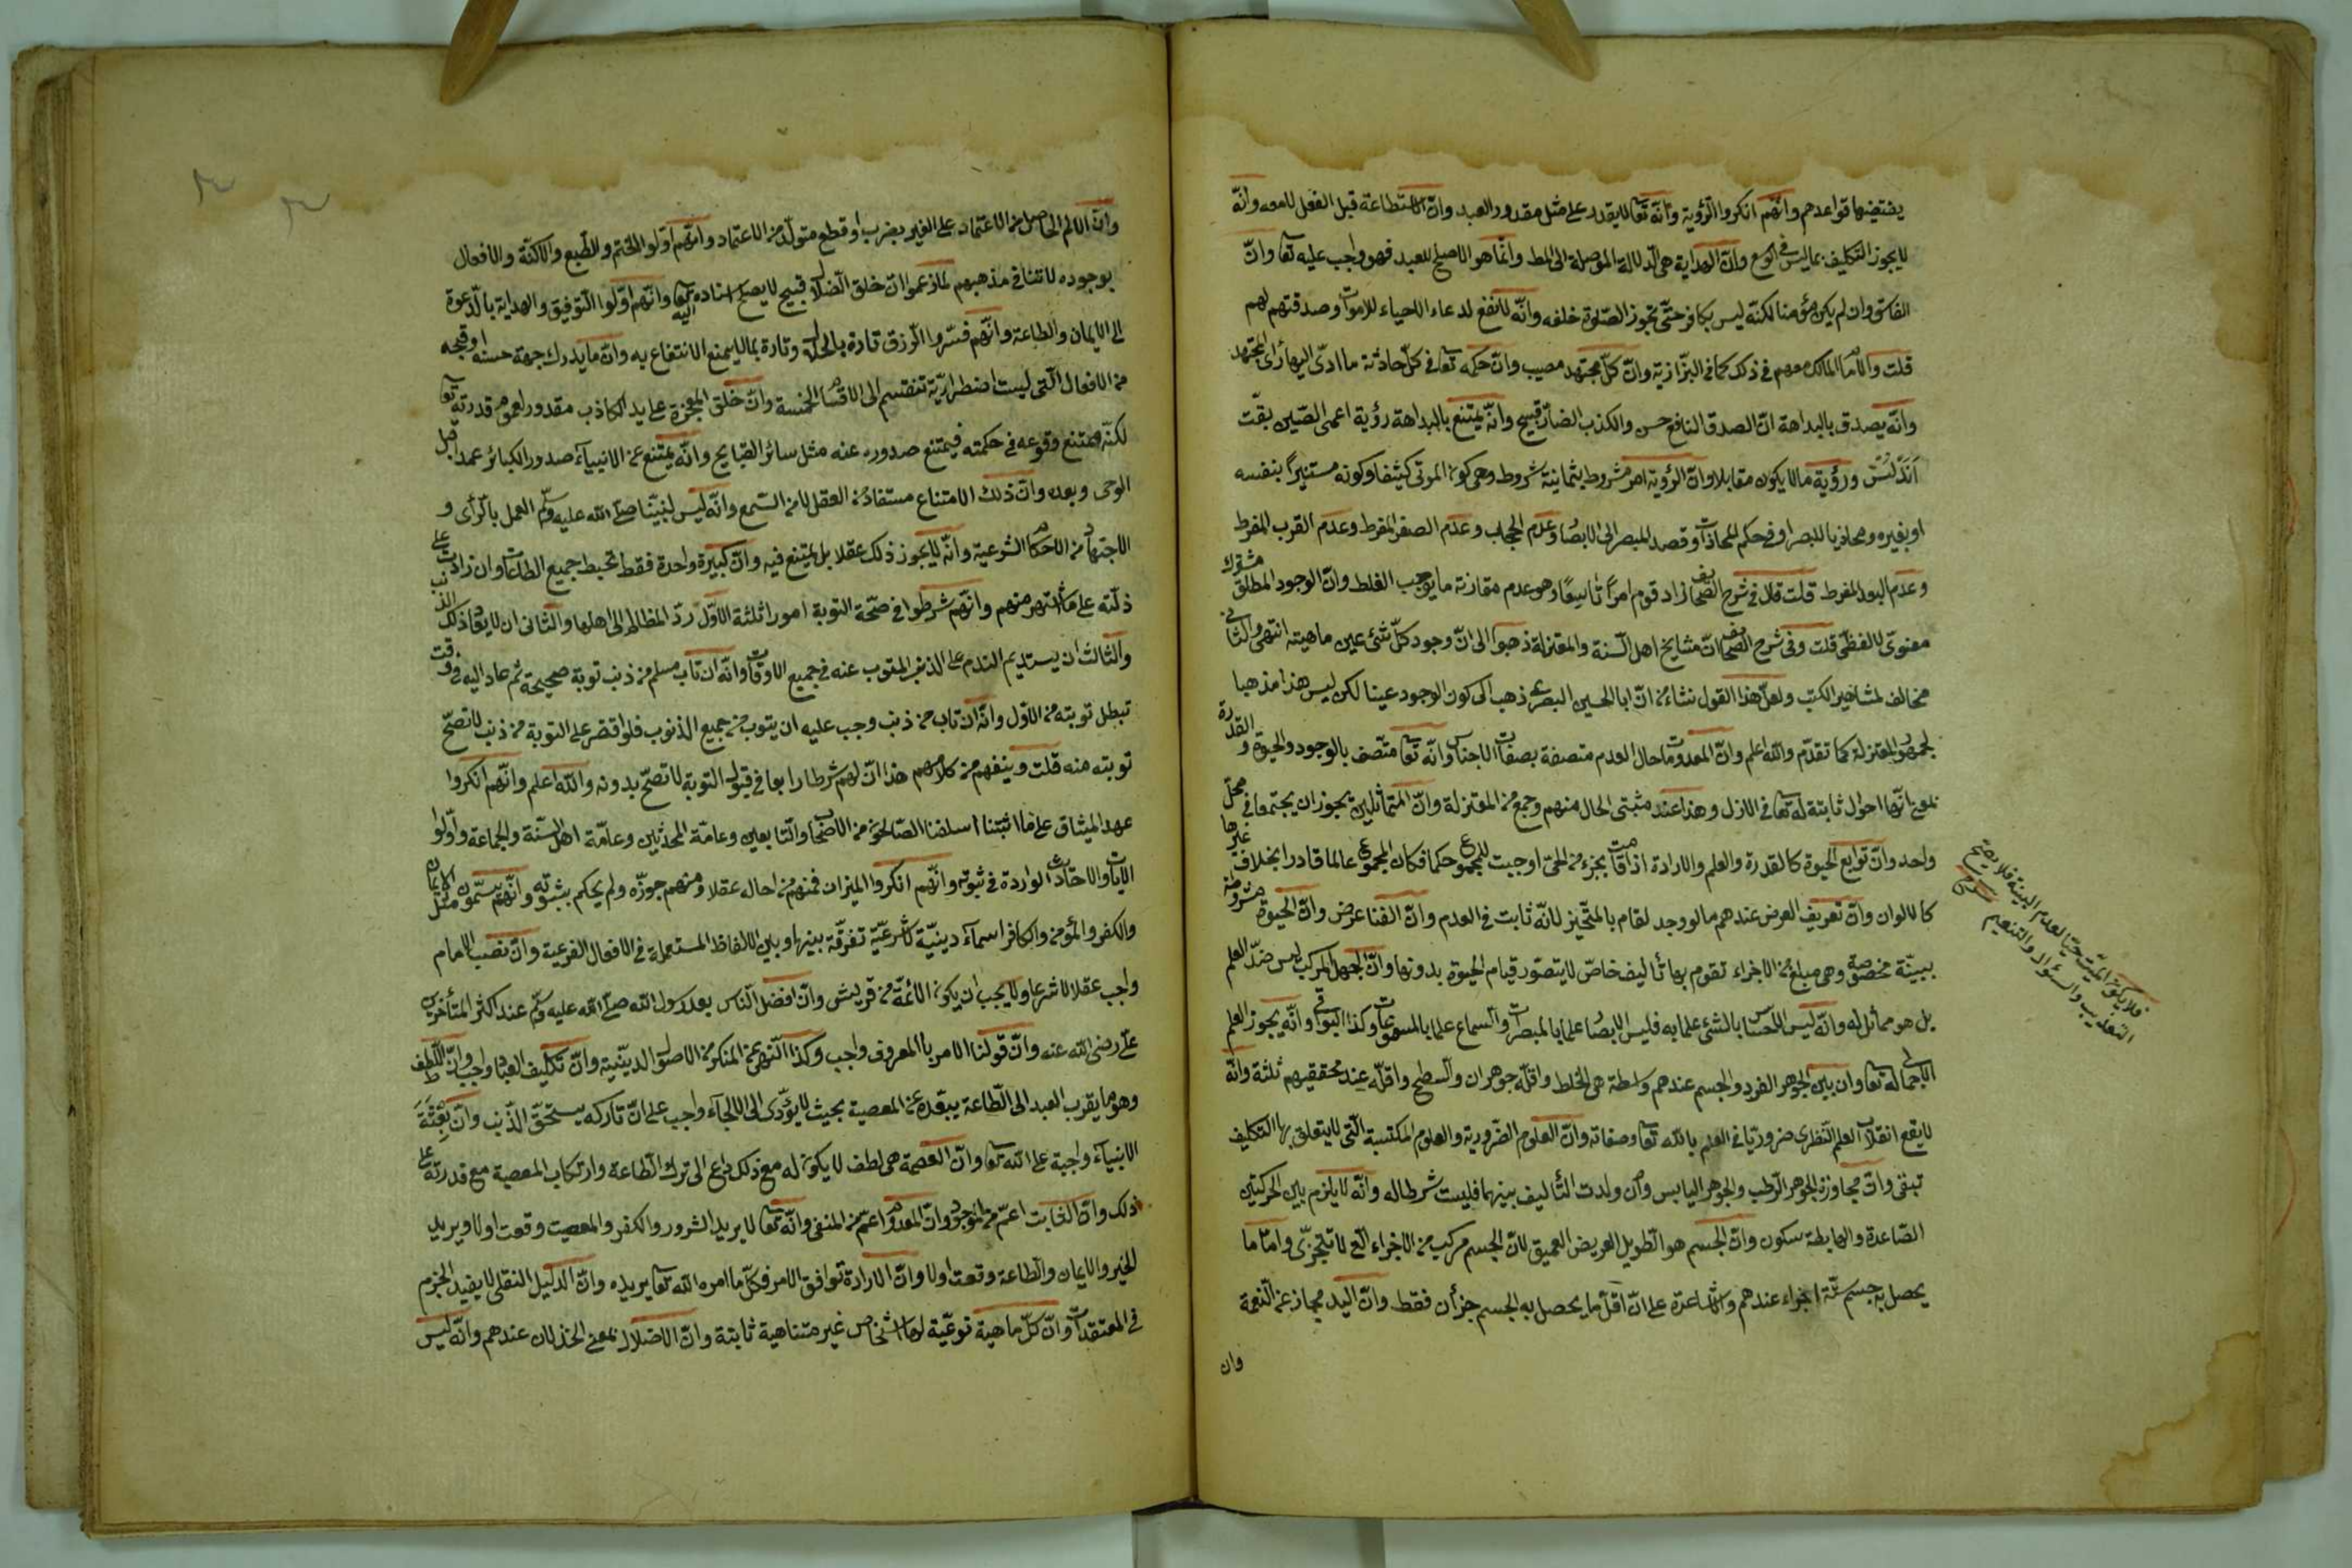 يقتضيها قواعدهم وانهم انكروا الرؤية وانه تعا لا يقدر على مثل مقدور العبد وان الاستطاعة قبل الفعل لا معه وانه
لا يجوز التكليف بما ليس في الوسع وان الهداية هي الدلالة الموصلة الى المط وانما هو الاصلح للعبد فهو واجب عليه تعا وان
الفاسق وان لم يكن مؤمنا لكنه ليس بكافر حتى تجوز الصلوة خلفه وانه لا نفع لدعاء الاحياء للاموات وصدقتهم لهم
قلت والامام المالك معهم في ذلك كما في البزازية وان كل مجتهد مصيب وان حكمه تعا في كل حادثة ما ادى اليها رأى المجتهد
وانه يصدق بالبداهة ان الصدق النافع حسن والكذب الضار قبيح وانه يمتنع بالبداهة رؤية اعمى الصين بقت
اندلس ورؤية ما لا يكون مقابلا وان الرؤية امر مشروط بثمانية شروط وهي كون المرئى كثيفا وكونه مستنيرا بنفسه
او بغيره ومحاذيا للبصر او في حكم المحاذات وقصد المبصر الى الابصار وعدم الحجاب وعدم الصغر المفرط وعدم القرب المفرط
وعدم البعد المفرط قلت قال في شرح الصحائف زاد قوم امرا تاسعا وهو عدم مقارنة ما يوجب الغلط وان الوجود المطلق مشترك
معنوى لا لفظى قلت وفى شرح الصحائف ان مشايخ اهل السنة والمعتزلة ذهبوا الى ان وجود كل شئ عين ماهيته انتهى والثانى
مخالف لمشاهير الكتب ولعل هذا القول نشاء من ان ابا الحسين البصرى ذهب الى كون الوجود عينا لكن ليس هذا مذهبا
لجمهور المعتزلة كما تقدم والله اعلم وان المعدومات حال العدم متصفة بصفات الاجناس وانه تعا متصف بالوجود والحيوة والقدرة
بمعنى انها احوال ثابتة له تعا في الازل وهذا عند مثبتى الحال منهم وجمع من المعتزلة وان المتماثلين يجوز ان يجتمعا في محل
واحد وان توابع الحيوة كالقدرة والعلم والارادة اذا قامت بجزء من الحى اوجبت للمجموع حكما فكان المجموع عالما قادرا بخلاف غيرها
كالالوان وان تعريف العرض عندهم ما لو وجد لقام بالمتحيز لانه ثابت في العدم وان الفنا عرض وان الحيوة مشروطة
ببينة مخصوصة وهي مبلغ من الاجزاء تقوم بها تأليف خاص لا يتصور قيام الحيوة بدونها وان الجهل المركب ليس ضد العلم
بل هو مماثل له وانه ليس الاحساس بالشئ علما به فليس الابصار علما بالمبصرات والسماع علما بالمسموعات وكذا البواقى وانه يجوز العلم
الاجمالى له تعا وان بين الجوهر الفرد والجسم عندهم واسطة هي الخط واقله جوهران والسطح واقله عند محققيهم ثلثة وانه
لا يقع انقلاب العلم النظرى ضروريا في العلم بالله تعا وصفاته وان العلوم الضرورية والعلوم المكتسبة التى لا يتعلق بها التكليف
تبقى وان مجاورة الجوهر الرطب والجوهر اليابس وان ولدت التأليف بينهما فليست شرطا له وانه لا يلزم بين الحركتين
الصاعدة والهابطة سكون وان الجسم هو الطويل العريض العميق لان الجسم مركب من الاجزاء التى لا تتجزى واما ما
يحصل به جسم ستة اجزاء عندهم والاشاعرة على ان اقل ما يحصل به الجسم جزأن فقط وان اليد مجاز عن النعمة
وان
فلا يكون الميت حيا لعدم البينة فلا يصح
التعذيب والسؤال والتنعيم
وان الالم الحاصل من الاعتماد على الغير بضرب او قطع متولد من الاعتماد وانهم اولوا الختم والطبع والاكنة والاقفال
بوجوده لا تنافى مذهبهم لما زعموا ان خلق الضلال قبيح لا يصح اسناده اليه تعا وانهم اولوا التوفيق والهداية بالدعوة
الى الايمان والطاعة وانهم فسروا الرزق تارة بالحلال وتارة بما لا يمنع الانتفاع به وان ما يدرك جهة حسنه او قبحه
من الافعال التى ليست اضطرارية تنقسم الى الاقسام الخمسة وان خلق المعجزة على يد الكاذب مقدور لعموم قدرته تعا
لكنه ممتنع وقوعه في حكمته فيمتنع صدوره عنه مثل سائر القبايح وانه يمتنع عن الانبياء صدور الكبائر عمدا قبل
الوحى وبعده وان ذلك الامتناع مستفاد من العقل لا من السمع وانه ليس لنبينا صلى الله عليه وسلم العمل بالرأى و
الاجتهاد من الاحكام الشرعية وانه لا يجوز ذلك عقلا بل يمتنع فيه وان كبيرة واحدة فقط تحبط جميع الطاعات وان زادت على
ذلته على ما اشتهر منهم وانهم شرطوا في صحة التوبة امورا ثلثة الاول رد المظالم الى اهلها والثانى ان لا يعاود ذلك الذنب
والثالث ان يستديم الندم على الذنب المتوب عنه في جميع الاوقات وانه ان تاب مسلم من ذنب توبة صحيحة ثم عاد اليه في وقت
تبطل توبته من الاول وانه ان تاب من ذنب وجب عليه ان يتوب من جميع الذنوب فلو اقتصر على التوبة من ذنب لا تصح
توبته منه قلت وينفهم من كلامهم هذا ان لهم شرطا رابعا في قبول التوبة لا تصح بدونه والله اعلم وانهم انكروا
عهد الميثاق على ما اثبتنا اسلفنا الصالحون من الاصحاب والتابعين وعامة المحدثين وعامة اهل السنة والجماعة واولوا
الآيات والاحاديث الواردة في ثبوته وانهم انكروا الميزان فمنهم من احاله عقلا ومنهم جوزه ولم يحكم بثبوته وانهم يسمون مثل الايمان
والكفر والمؤمن والكافر اسماء دينية لا شرعية تفرقة بينها وبين الالفاظ المستعملة في الافعال الفرعية وان نصب الامام
واجب عقلا لا شرعا ولا يجب ان يكون الائمة من قريش وان افضل الناس بعد رسول الله صلى الله عليه وسلم عند اكثر المتأخرين
على رضى الله عنه وان قولنا الامر بالمعروف واجب وكذا النهى عن المنكر من الاصول الدينية وان تكليف العباد واجب وان اللطف
وهو ما يقرب العبد الى الطاعة يبعده عن المعصية بحيث لا يؤدى الى الالجاء واجب على ان تاركه يستحق الذنب وان بعثة
الانبياء واجبة على الله تعا وان العصمة هي لطف لا يكون له مع ذلك داع الى ترك الطاعة وارتكاب المعصية مع قدرته على
ذلك وان الثابت اعم من الموجود وان المعدوم اعم من المنفى وانه تعا لا يريد الشرور والكفر والمعصيت وقعت اولا ويريد
الخير والايمان والطاعة وقعت اولا وان الارادة توافق الامر فكل ما امره الله تعا يريده وان الدليل النقلى لا يفيد الجزم
في المعتقدات وان كل ماهية نوعية لها اشخاص غير متناهية ثابتة وان الاضلال بمعنى الخذلان عندهم وانه ليس